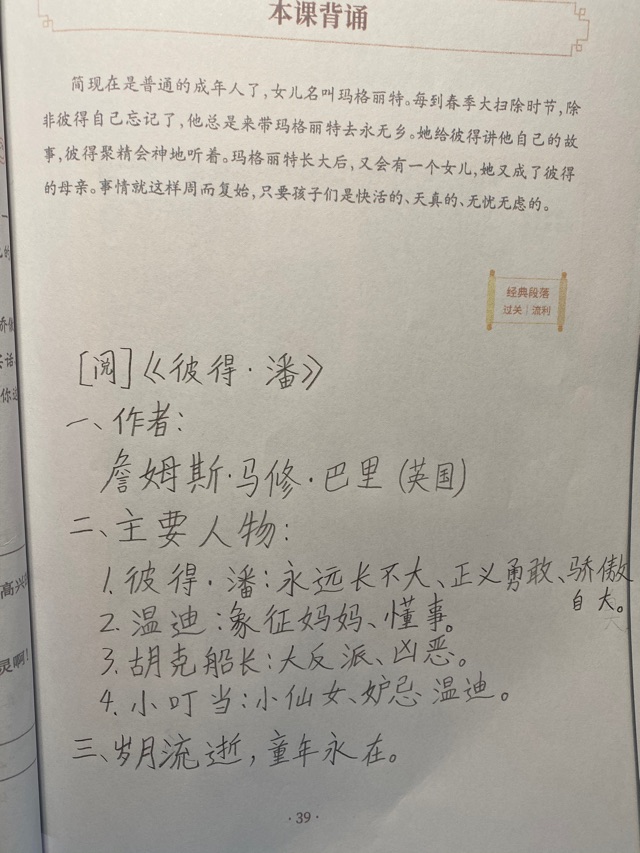 本课背诵
简现在是普通的成年人了，女儿名叫玛格丽特。每到春季大扫除时节，除
非彼得自己忘记了，他总是来带玛格丽特去永无乡。她给彼得讲他自己的故
事，彼得聚精会神地听着。玛格丽特长大后，又会有一个女儿，她又成了彼得
的母亲。事情就这样周而复始，只要孩子们是快活的、天真的、无忧无虑的。
经典段落
过关｜流利
[阅]《彼得·潘》
一、作者：
詹姆斯·马修·巴里（英国）
二、主要人物：
1. 彼得·潘：永远长不大、正义勇敢、骄傲
自大。
2. 温迪：象征妈妈、懂事。
3. 胡克船长：大反派、凶恶。
4. 小叮当：小仙女、妒忌温迪。
三、岁月流逝，童年永在。
·39·
高兴
灵啊！